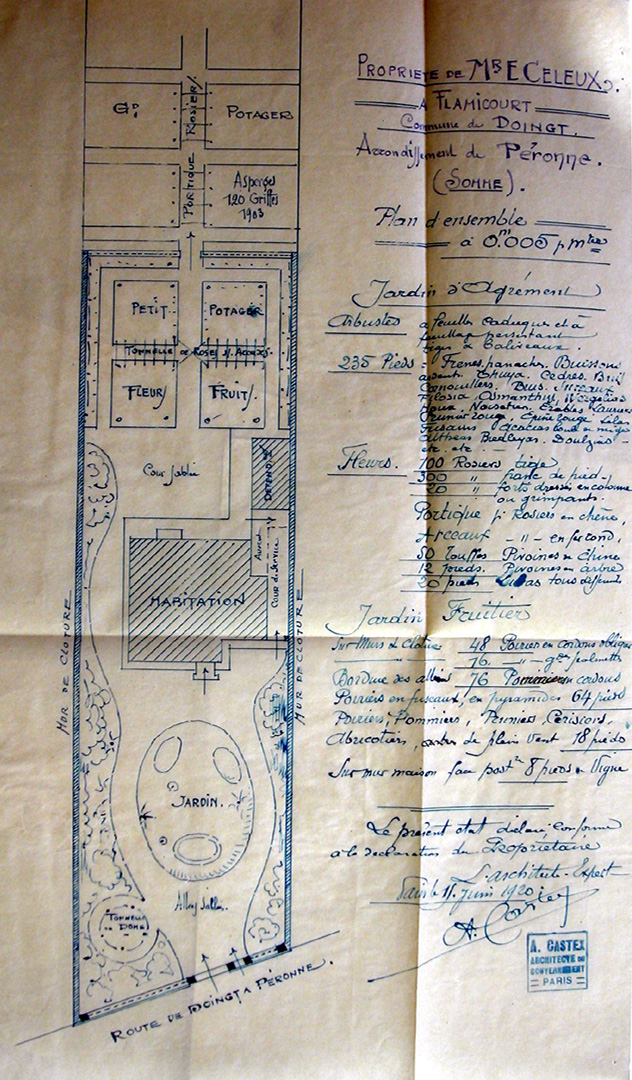 PROPRIETE DE MR E CELEUX.
A FLAMICOURT
Commune de DOINGT.
Arrondissement de Péronne.
(SOMME).
Plan d'ensemble
à 0.m005 p mtre
Jardin d'Agrément
Arbustes à feuilles caduques et à
feuillage persistant
tiges & Baliveaux
235 Pieds - Frenes panachés. Buissons
ardent. Thuya. Cèdres.
Cornouillers. Buis.
Osmanthus
Noisetier. Erables Lauriers
Prunier rouge. Lilas
Fusains. Acacias boule
Altheas
etc. etc.
Fleurs. 100 Rosiers tige
300 " franc de pied
20 " forts dressés en colonne
ou grimpants.
Portique pr Rosiers en chêne,
Arceaux - " - en fer rond,
50 Touffes Pivoines de Chine
12 pieds. Pivoines en arbre
20 pieds Lilas
Jardin Fruitier
Sur Murs de Clôture 48 Poiriers en cordons obliques
" 16. - " - gdes palmettes
Bordure des allées 76 Pommiers en cordons
Poiriers en fuseaux, en pyramides 64 pieds
Poiriers, Pommiers, Pruniers, Cerisiers,
Abricotiers, de plein vent 18 pieds
Sur mur maison façe postre 8 pieds de Vigne
Le présent état déclaré, conforme
à la declaration du Propriétaire
L'architecte-Expert
Paris le 15 Juin 1920.
A. Castex
A. CASTEX
ARCHITECTE DU
GOUVERNEMENT
PARIS
GD
POTAGER
PORTIQUE
ROSIERS
Asperges
120 Griffes
1903
PETIT
POTAGER
TONNELLE DE ROSES
FLEURS
FRUITS
Cour Sablée
HABITATION
Auvent
Cour de Service
MUR DE CLOTURE
MUR DE CLOTURE
JARDIN.
Allées Sablées
TONNELLE
DOME
ROUTE DE DOINGT A PÉRONNE.